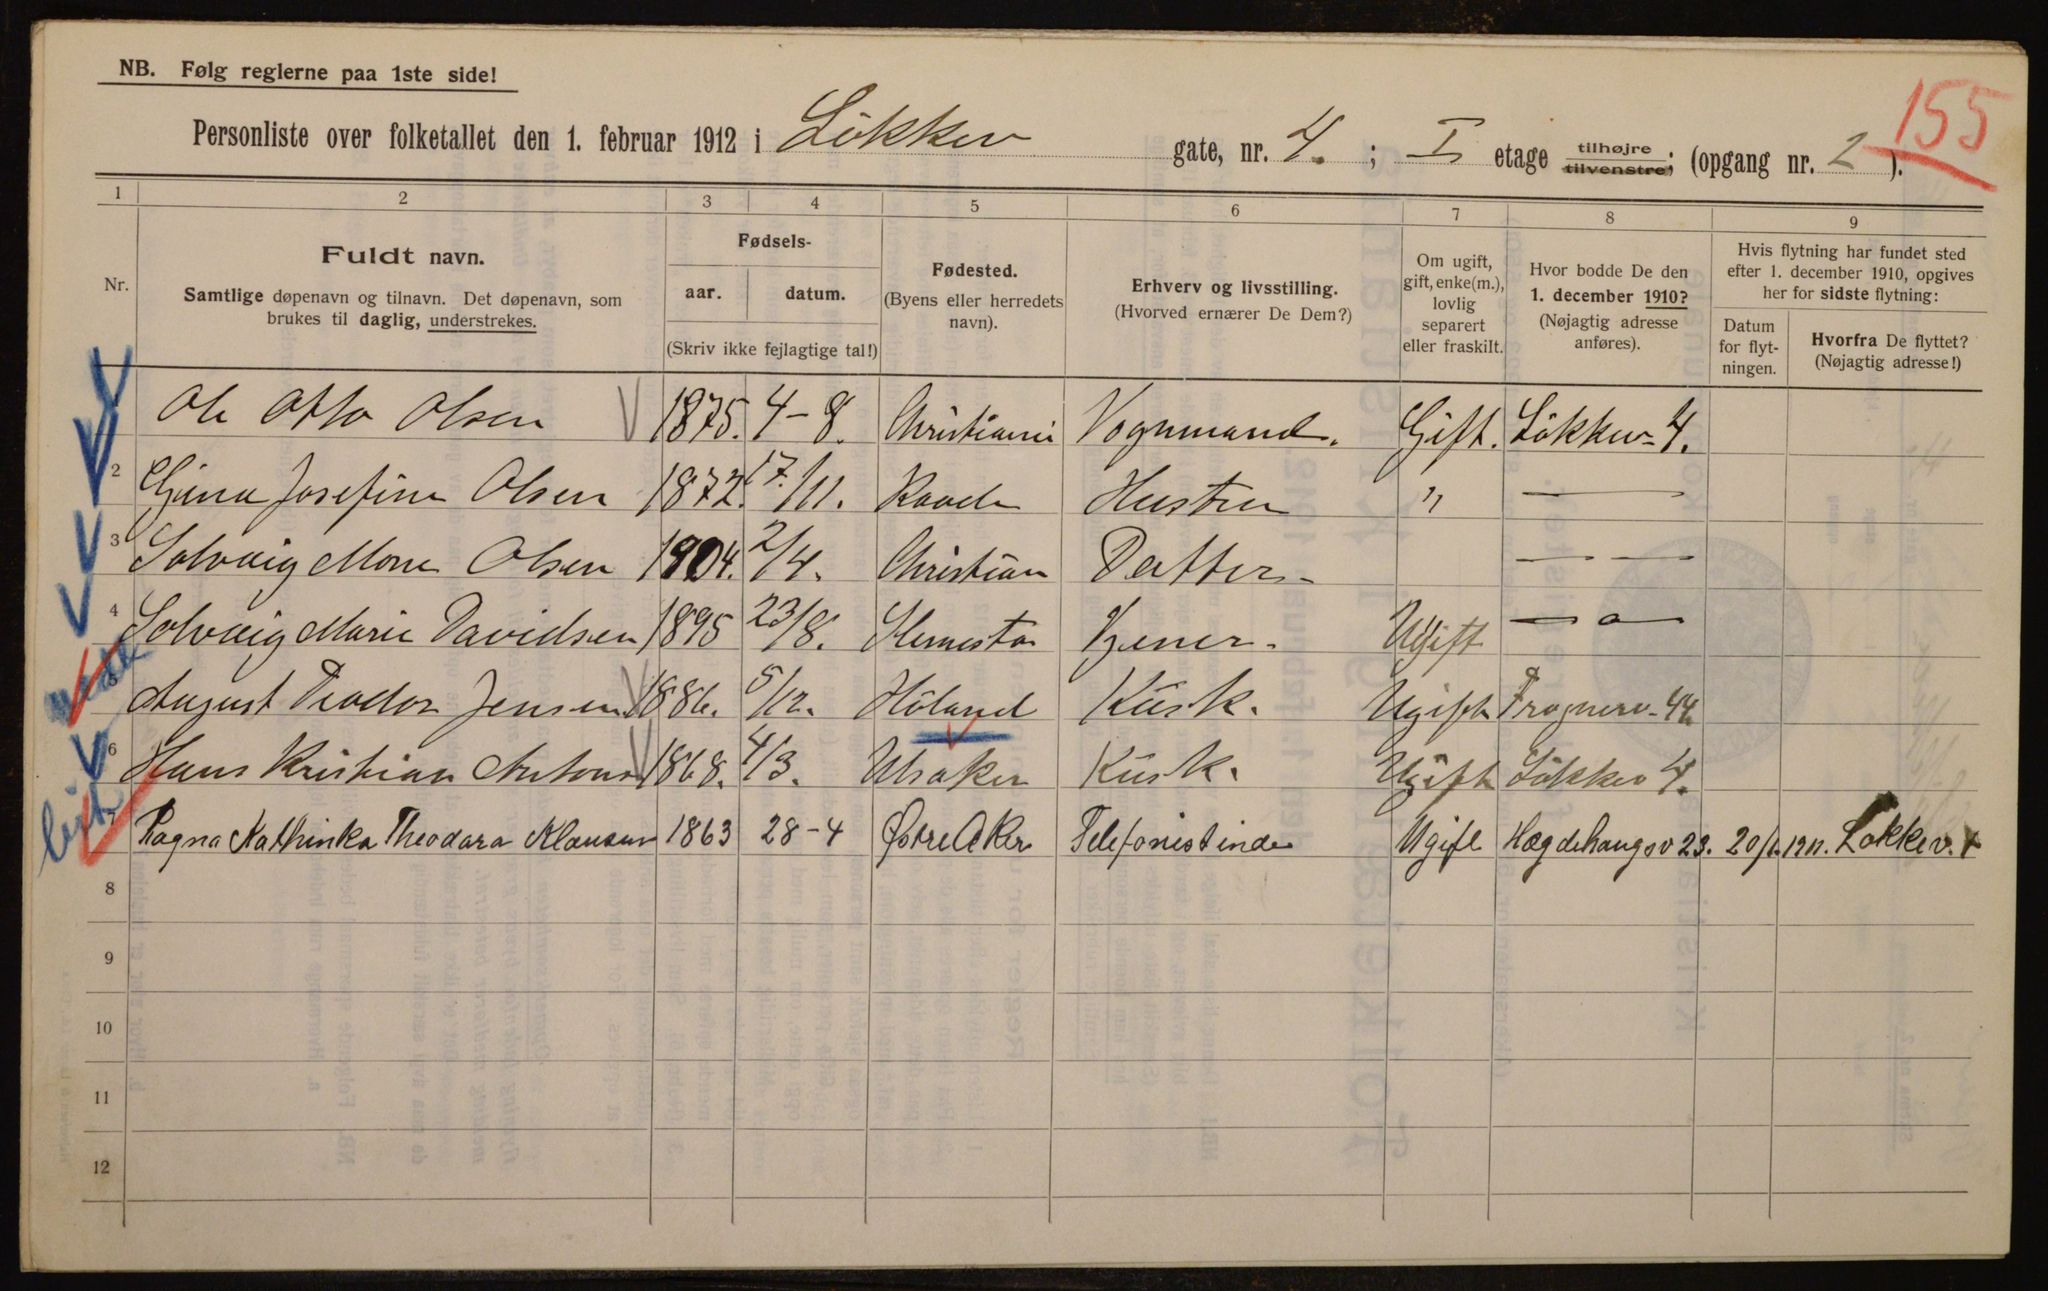 NB. Følg reglerne paa 1ste side!
155
Personliste over folketallet den 1. februar 1912 i Lökkev gate, nr. 4. ; I etage tilhøjre tilvenstre; (opgang nr. 2 ).
1 2 3 4 5 6 7 8 9
Nr.
Fuldt navn.
Samtlige døpenavn og tilnavn. Det døpenavn, som
brukes til daglig, understrekes.
Fødsels-
aar. datum.
(Skriv ikke fejlagtige tal!)
Fødested.
(Byens eller herredets
navn).
Erhverv og livsstilling.
(Hvorved ernærer De Dem?)
Om ugift,
gift, enke(m.),
lovlig
separert
eller fraskilt.
Hvor bodde De den
1. december 1910?
(Nøjagtig adresse
anføres).
Hvis flytning har fundet sted
efter 1. december 1910, opgives
her for sidste flytning:
Datum
for flyt-
ningen.
Hvorfra De flyttet?
(Nøjagtig adresse!)
Ole Otto Olsen 1875. 4-8. Christiania Vognmand. Gift. Lökkev. 4.
2 Gina Josefine Olsen 1872. 17/11. Raade Hustru " —
3 Solvaig Olsen 1904. 2/4. Christian Datter — —
4 Solvaig Marie Davidsen 1895 23/8. Tjener. Ugift — " —
5 August Teodor Jensen 1886. 5/12. Höland Kusk. Ugift Frognerv. 44
6 Hans Kristian Antons 1868. 4/3. Ulsaker Kusk. Ugift Lökkev 4.
7 Ragna Kathinka Theodora Klausen 1863 28-4 Østre Aker Telefonistinde Ugift Hægdehaugsv 23. Løkkev.
8
9
10
11
12